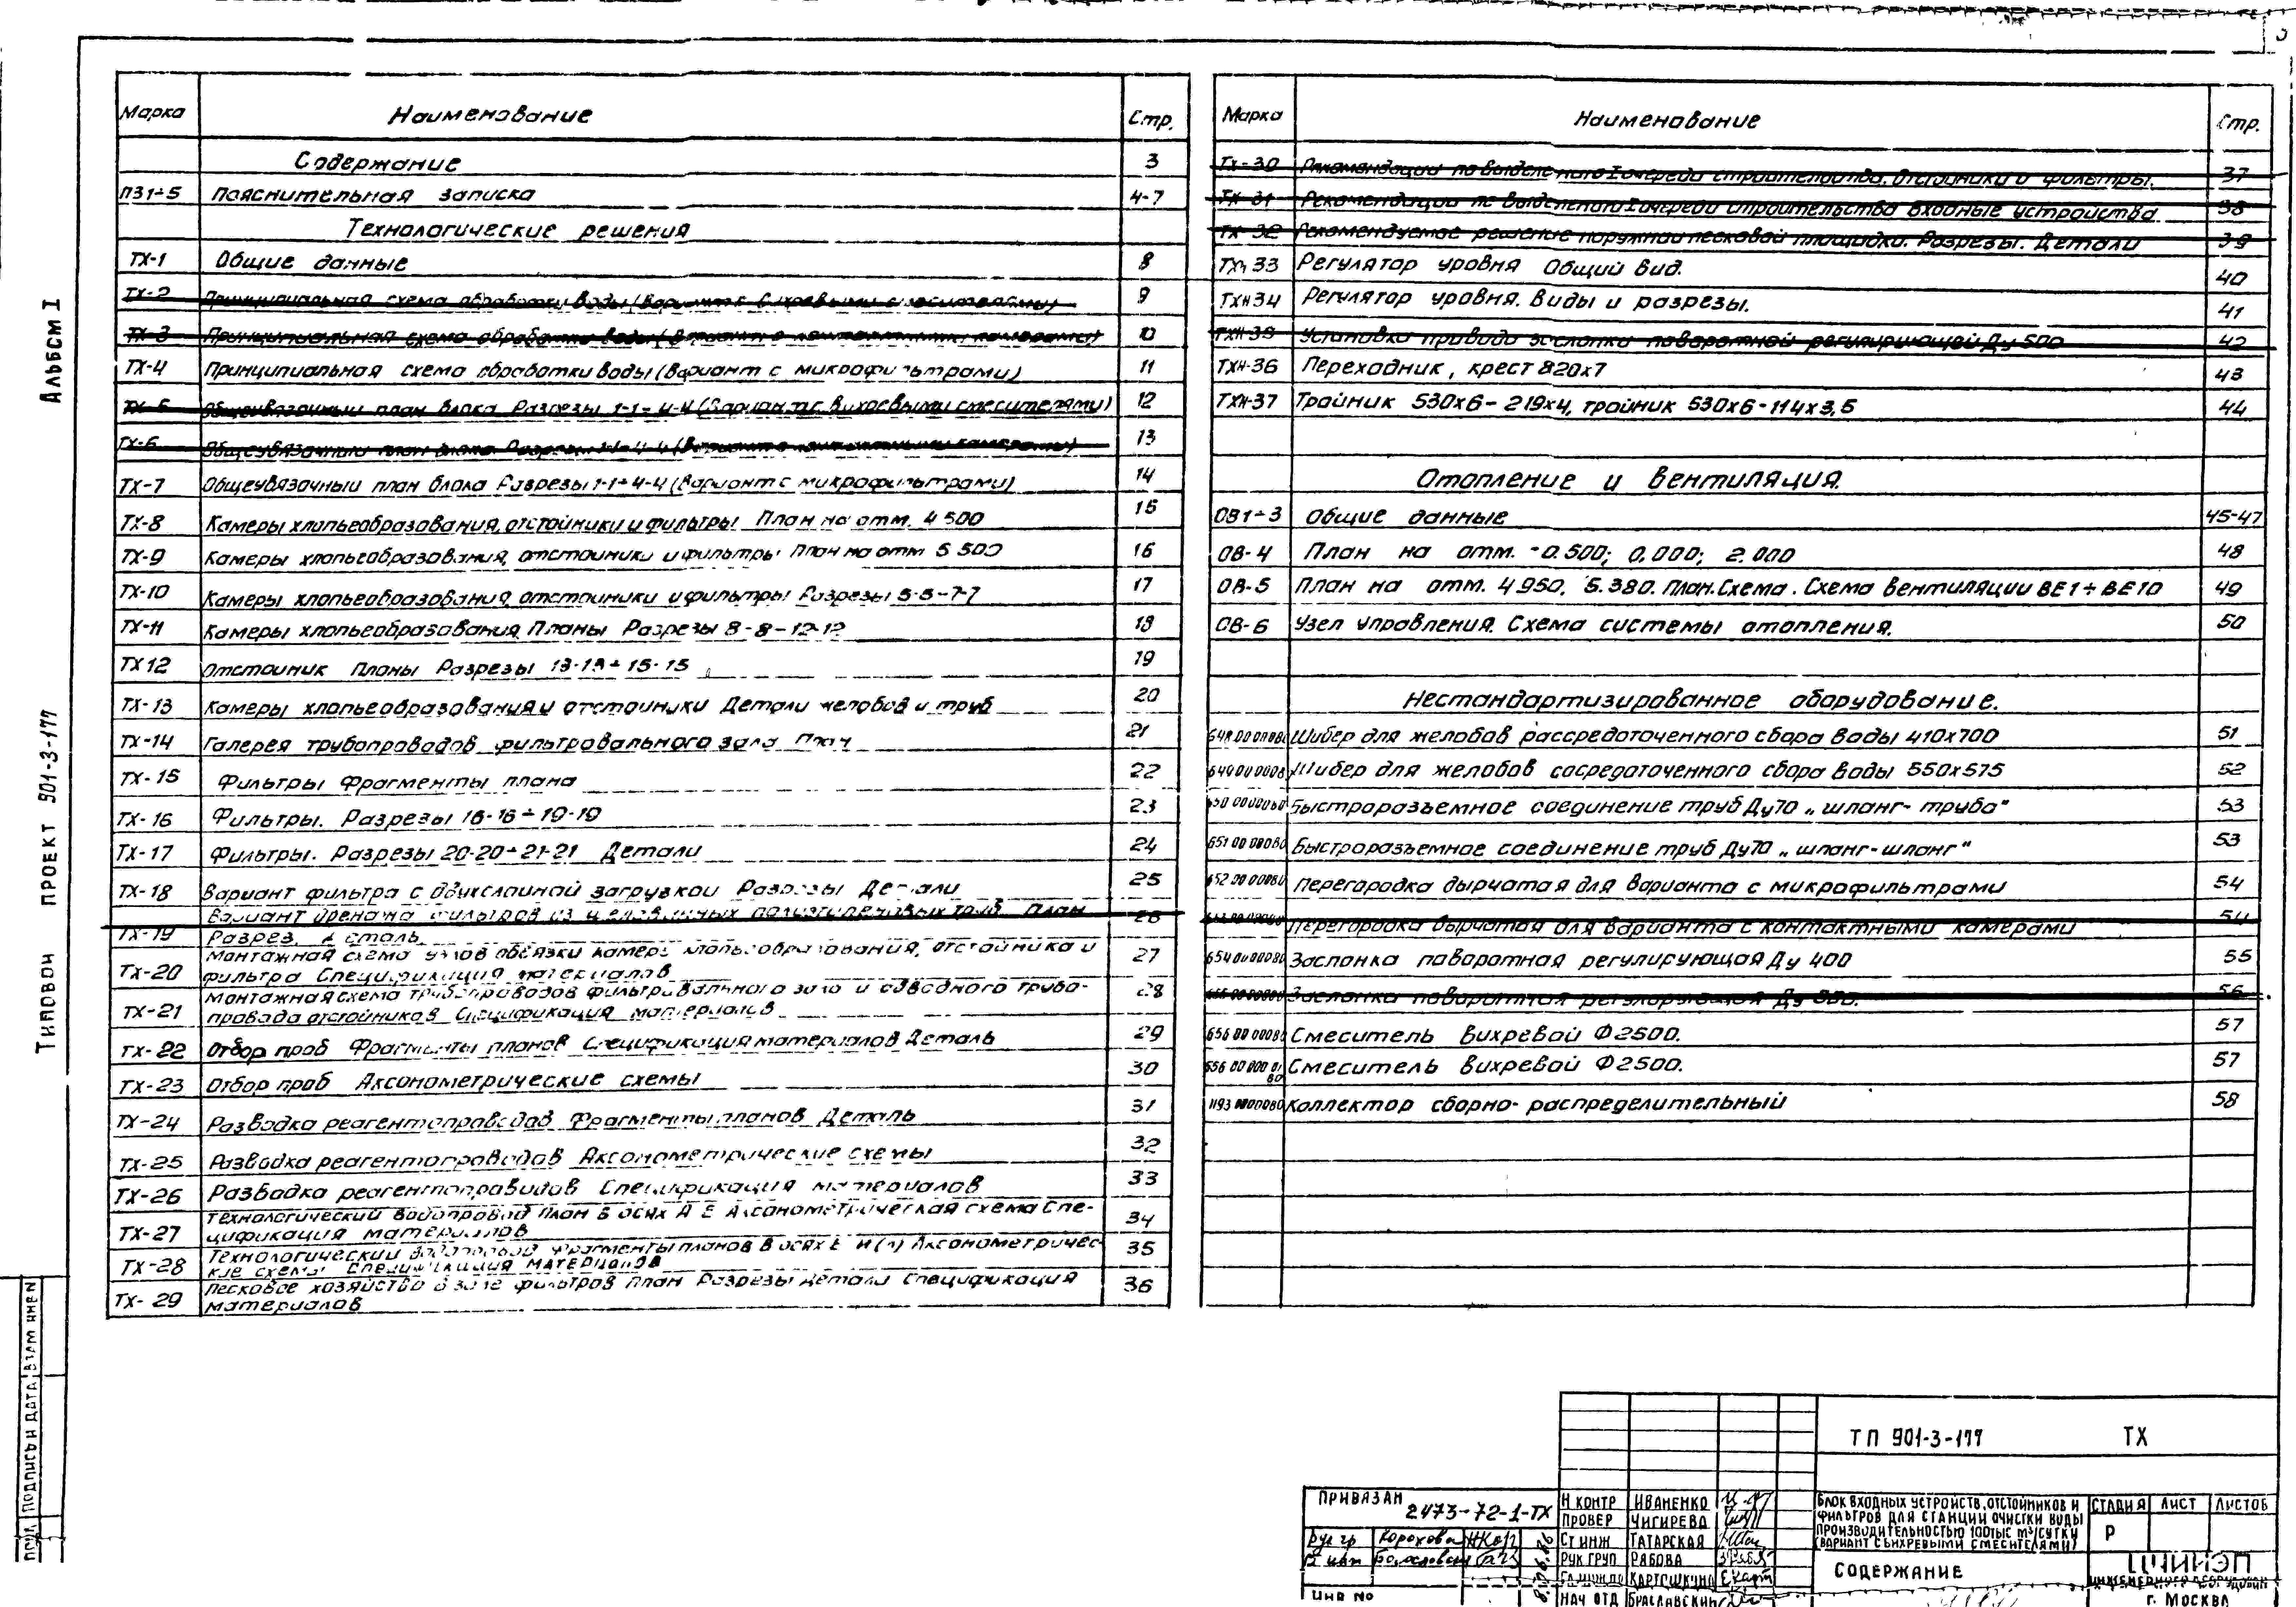 Марка Наименование Стр.
Содержание 3
ПЗ1÷5 Пояснительная записка 4-7
Технологические решения
ТХ-1 Общие данные 8
ТХ-2 Принципиальная схема обработки воды (Вариант с вихревыми смесителями) 9
ТХ-3 Принципиальная схема обработки воды (Вариант с контактными камерами) 10
ТХ-4 Принципиальная схема обработки воды (Вариант с микрофильтрами) 11
ТХ-5 Общеувязочный план блока Разрезы 1-1÷4-4 (Вариант с вихревыми смесителями) 12
ТХ-6 Общеувязочный план блока Разрезы 1-1÷4-4 (Вариант с контактными камерами) 13
ТХ-7 Общеувязочный план блока Разрезы 1-1÷4-4 (Вариант с микрофильтрами) 14
ТХ-8 Камеры хлопьеобразования, отстойники и фильтры План на отм. 4 500 15
ТХ-9 Камеры хлопьеобразования, отстойники и фильтры План на отм 5 500 16
ТХ-10 Камеры хлопьеобразования, отстойники и фильтры Разрезы 5-5÷7-7 17
ТХ-11 Камеры хлопьеобразования Планы Разрезы 8-8-12-12 18
ТХ 12 Отстойник Планы Разрезы 13-13÷15-15 19
ТХ-13 Камеры хлопьеобразования и отстойники Детали желобов и труб 20
ТХ-14 Галерея трубопроводов фильтровального зала План 21
ТХ-15 Фильтры Фрагменты плана 22
ТХ-16 Фильтры. Разрезы 16-16÷19-19 23
ТХ-17 Фильтры. Разрезы 20-20÷21-21 Детали 24
ТХ-18 Вариант фильтра с двухслойной загрузкой Разрезы Детали 25
Вариант дренажа фильтров из щелеванных полиэтиленовых труб План 26
ТХ-19 Разрез. Деталь
Монтажная схема узлов обвязки камеры хлопьеобразования, отстойника и 27
ТХ-20 фильтра Спецификация материалов
Монтажная схема трубопроводов фильтровального зала и отводного трубо- 28
ТХ-21 провода отстойников Спецификация материалов
ТХ-22 Отбор проб Фрагменты планов Спецификация материалов Деталь 29
ТХ-23 Отбор проб Аксонометрические схемы 30
ТХ-24 Разводка реагентопроводов Фрагменты планов Деталь 31
ТХ-25 Разводка реагентопроводов Аксонометрические схемы 32
ТХ-26 Разводка реагентопроводов Спецификация материалов 33
Технологический водопровод План в осях А Е Аксонометрическая схема Спе- 34
ТХ-27 цификация материалов
Технологический водопровод Фрагменты планов в осях Е И(Л) Аксонометричес- 35
ТХ-28 кие схемы Спецификация материалов
Песковое хозяйство в зале фильтров План Разрезы Детали Спецификация 36
ТХ-29 материалов
Марка Наименование Стр.
ТХ-30 Рекомендации по выделению I очереди строительства. Отстойники и фильтры. 37
ТХ-31 Рекомендации по выделению I очереди строительства Входные устройства 38
ТХ-32 Рекомендуемое решение наружной песковой площадки. Разрезы. Детали 39
ТХН 33 Регулятор уровня Общий вид. 40
ТХН 34 Регулятор уровня. Виды и разрезы. 41
ТХН-35 Установка привода заслонки поворотной регулирующей Ду 500 42
ТХН-36 Переходник, крест 820х7 43
ТХН-37 Тройник 530х6-219х4, тройник 530х6-114х3,5 44
Отопление и вентиляция.
ОВ1÷3 Общие данные 45-47
ОВ-4 План на отм. -0.500; 0.000; 2.000 48
ОВ-5 План на отм. 4 950, 5.380. План.Схема. Схема вентиляции ВЕ1÷ВЕ10 49
ОВ-6 Узел управления. Схема системы отопления. 50
Нестандартизированное оборудование.
Шибер для желобов рассредоточенного сбора воды 410х700 51
Шибер для желобов сосредоточенного сбора воды 550х575 52
Быстроразъемное соединение труб Ду70 „шланг-труба" 53
Быстроразъемное соединение труб Ду70 „шланг-шланг" 53
Перегородка дырчатая для варианта с микрофильтрами 54
Перегородка дырчатая для варианта с контактными камерами 54
Заслонка поворотная регулирующая Ду 400 55
Заслонка поворотная регулирующая Ду 500. 56
Смеситель вихревой Ф2500. 57
Смеситель вихревой Ф2500. 57
Коллектор сборно-распределительный 58
Альбом I
Типовой проект 901-3-177
ПОДПИСЬ И ДАТА ВЗАМ ИНВ N
ТП 901-3-177 ТХ
ПРИВЯЗАН
2473-72-1-ТХ
Рук гр Корохова
ИНВ No
Н КОНТР ИВАНЕНКО
ПРОВЕР ЧИГИРЕВА
СТ ИНЖ ТАТАРСКАЯ
РУК ГРУП РЯБОВА
НАЧ ОТД БРАСЛАВСКИЙ
БЛОК ВХОДНЫХ УСТРОЙСТВ, ОТСТОЙНИКОВ И
ФИЛЬТРОВ ДЛЯ СТАНЦИИ ОЧИСТКИ ВОДЫ
ПРОИЗВОДИТЕЛЬНОСТЬЮ 100тыс м³/СУТКИ
(ВАРИАНТ С ВИХРЕВЫМИ СМЕСИТЕЛЯМИ)
СТАДИЯ ЛИСТ ЛИСТОВ
Р
СОДЕРЖАНИЕ
ЦНИИЭП
ИНЖЕНЕРНОГО ОБОРУДОВАНИЯ
г. МОСКВА